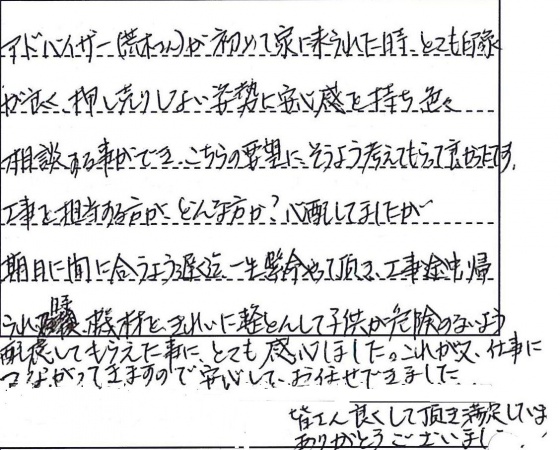 アドバイザー(荒木さん)が初めて家に来られた時、とても印象
が良く、押し売りしない姿勢に安心感を持ち色々
相談する事ができ、こちらの要望に、そうよう考えてもらって良かったです。
工事を担当する方が、どんな方か?心配してましたが
期日に間に合うよう遅く迄一生懸命やって頂き、工事途中帰
られる際、機材など、きれいに整とんして子供が危険のないよう
配慮してもらえた事に、とても感心しました。これが又、仕事に
つながってきますので安心して、お任せできました
皆さん良くして頂き満足していま
ありがとうございまし